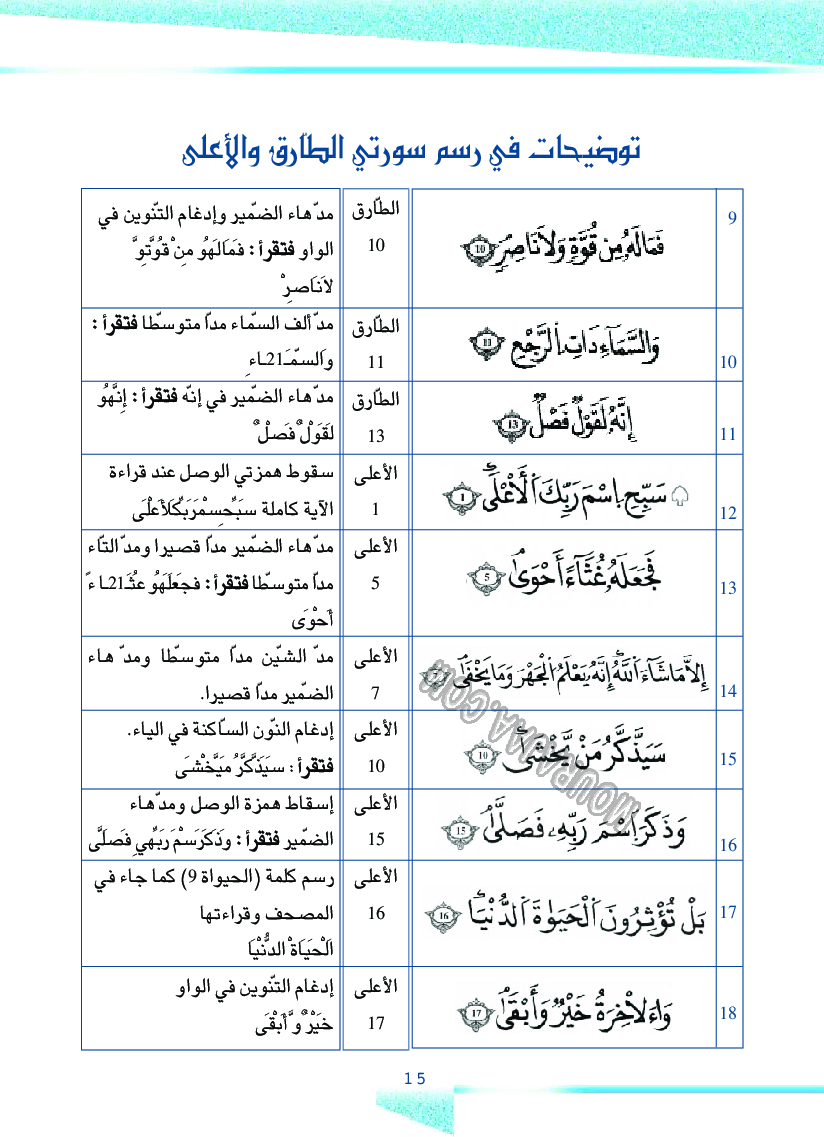 توضيحات في رسم سورتي الطّارق والأعلى
9
فَمَا لَهُۥ مِن قُوَّةٖ وَلَا نَاصِرٖ 10
الطّارق
10
مدّ هاء الضّمير وإدغام التّنوين في
الواو فتقرأ : فَمَالَهُو مِنْ قُوَّتِوَّ
لاَنَاصِرْ
10
وَالسَّمَآءِ ذَاتِ اِلرَّجْعِ 11
الطّارق
11
مدّ ألف السّماء مدّا متوسّطا فتقرأ :
وَالسمّـَ21ـاءِ
11
إِنَّهُۥ لَقَوْلٞ فَصْلٞ 13
الطّارق
13
مدّ هاء الضّمير في إنّه فتقرأ : إِنَّهُو
لقَوْلٌ فَصْلٌ
12
سَبِّحِ اِسْمَ رَبِّكَ اَلْأَعْلَى 1
الأعلى
1
سقوط همزتي الوصل عند قراءة
الآية كاملة سبَحِّسِمْرَبِكَّلأَعلْىَ
13
فَجَعَلَهُۥ غُثَآءً أَحْوَىٰ 5
الأعلى
5
مدّ هاء الضّمير مدّا قصيرا ومدّ الثّاء
مدّا متوسّطا فتقرأ : فجعَلَهُو غثُـَ21ـاءً
أحْوَى
14
إِلَّا مَا شَآءَ اَللَّهُ إِنَّهُۥ يَعْلَمُ اُلْجَهْرَ وَمَا يَخْفَىٰ 7
الأعلى
7
مدّ الشّين مدّا متوسّطا ومدّ هاء
الضّمير مدّا قصيرا.
15
سَيَذَّكَّرُ مَنْ يَّخْشَىٰ 10
الأعلى
10
إدغام النّون السّاكنة في الياء.
فتقرأ : سيَذَكَّرُ مَيَّخْشَى
16
وَذَكَرَ اَسْمَ رَبِّهِۦ فَصَلَّىٰ 15
الأعلى
15
إسقاط همزة الوصل ومدّ هاء
الضّمير فتقرأ : وذَكَرَسْمَ رَبِهِّي فَصَلَّى
17
بَلْ تُؤْثِرُونَ اَلْحَيَوٰةَ اَلدُّنْيَا 16
الأعلى
16
رسم كلمة (الحيواة 9) كما جاء في
المصحف وقراءتها
الْحَيَاةْ الدُّنْيَا
18
وَاَلْأَخِرَةُ خَيْرٞ وَأَبْقَىٰ 17
الأعلى
17
إدغام التّنوين في الواو
خَيْرٌ وَّأَبْقَى
MOURAJAA.COM
15